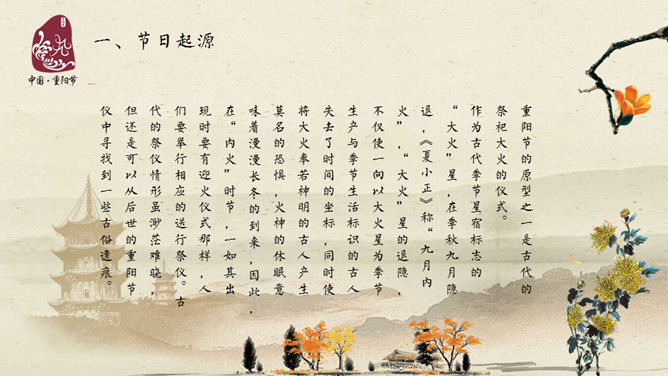 一、节日起源
中国·重阳节
重阳节的原型之一是古代的
祭祀大火的仪式。
作为古代季节星宿标志的
“大火”星,在季秋九月隐
退,《夏小正》称“九月内
火”,“大火”星的退隐,
不仅使一向以大火星为季节
生产与季节生活标识的古人
失去了时间的坐标,同时使
将大火奉若神明的古人产生
莫名的恐惧,火神的休眠意
味着漫漫长冬的到来,因此,
在“内火”时节,一如其出
现时要有迎火仪式那样,人
们要举行相应的送行祭仪。古
代的祭仪情形虽渺茫难晓,
但还是可以从后世的重阳节
仪中寻找到一些古俗遗痕。